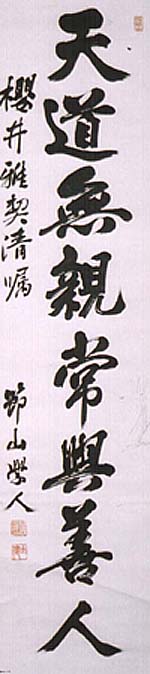 天道無親常與善人
櫻井雅契清囑
節山學人